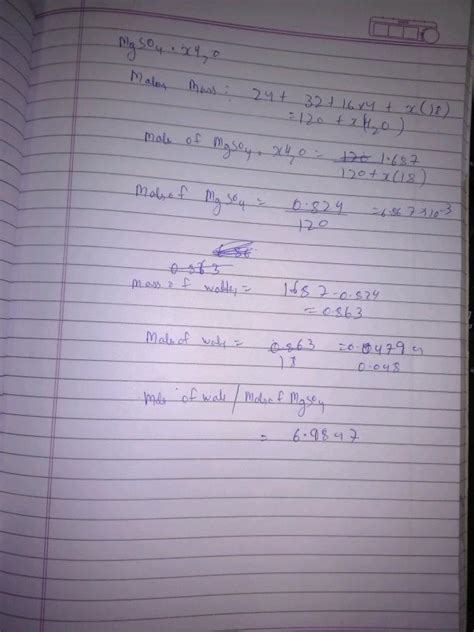 MgSO4 . xH2O
Molar Mass : 24 + 32 + 16x4 + x(18)
= 120 + x(H2O)
Mole of MgSO4 . xH2O = 1.687
120 + x(18)
Moles of MgSO4 = 0.824 = 6.867x10-3
120
0.863
Mass of water = 1.687 - 0.824
= 0.863
Mole of water = 0.863 = 0.0479
18 0.048
Mole of wate / Moles of MgSO4
= 6.9847